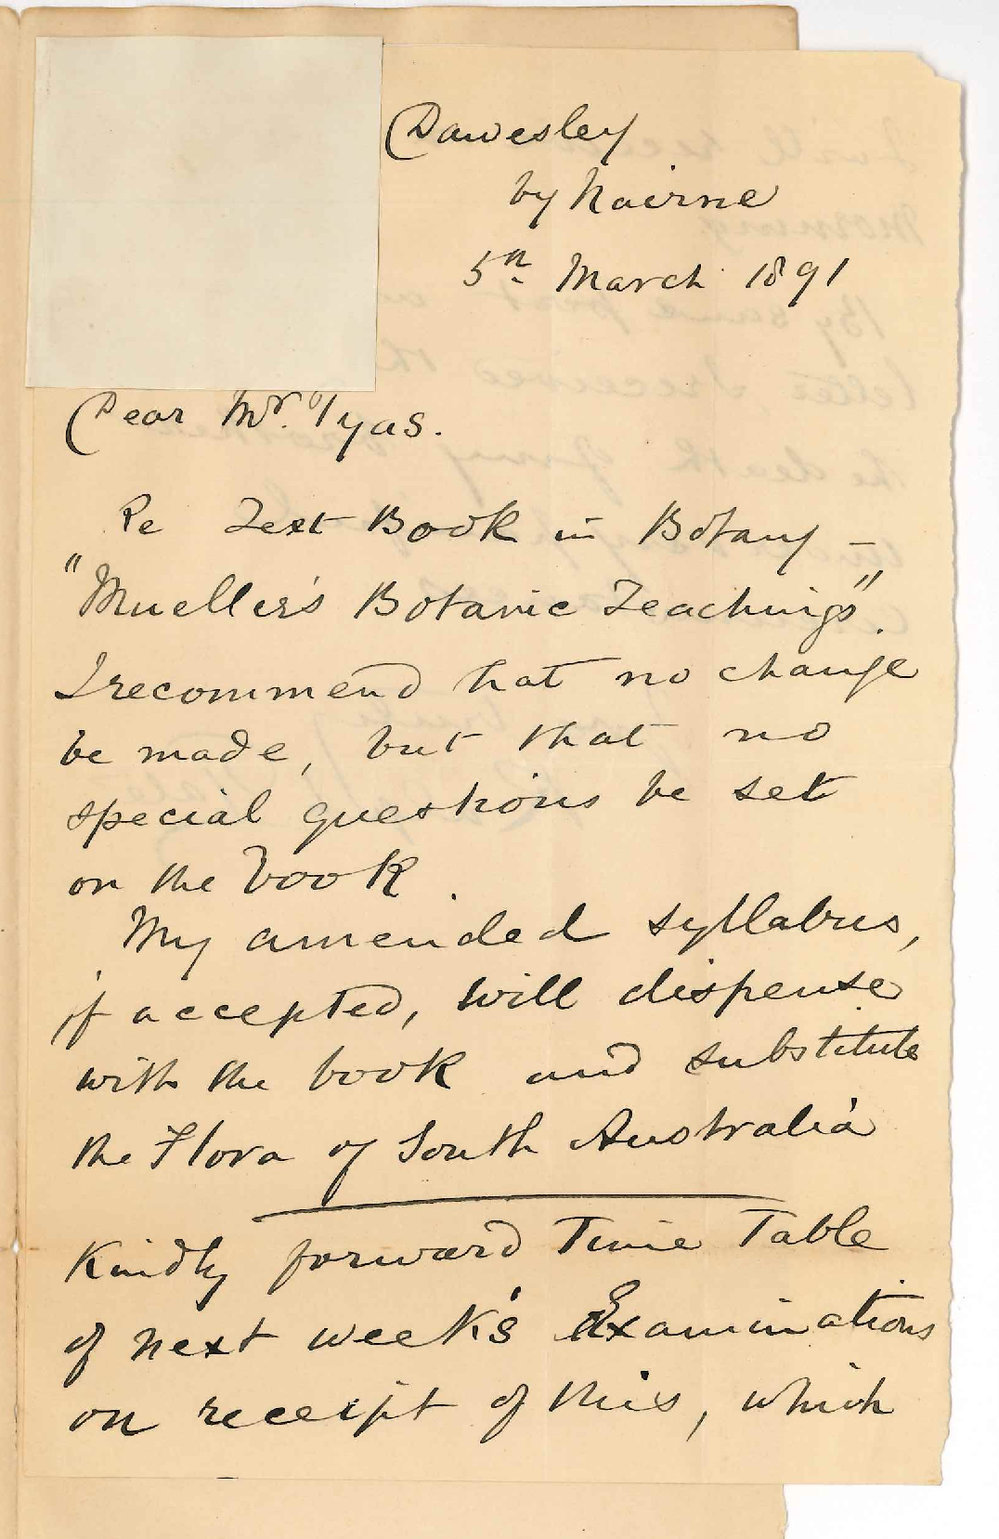 Dawesley
by Nairne
5th March 1891
Dear Mr. Tyas.
Re Text Book in Botany —
"Mueller's Botanic Teachings".
I recommend that no change
be made, but that no
special questions be set
on the book.
My amended syllabus,
if accepted, will dispense
with the book and substitute
the Flora of South Australia
Kindly forward Time Table
of next week's Examinations
on receipt of this, which